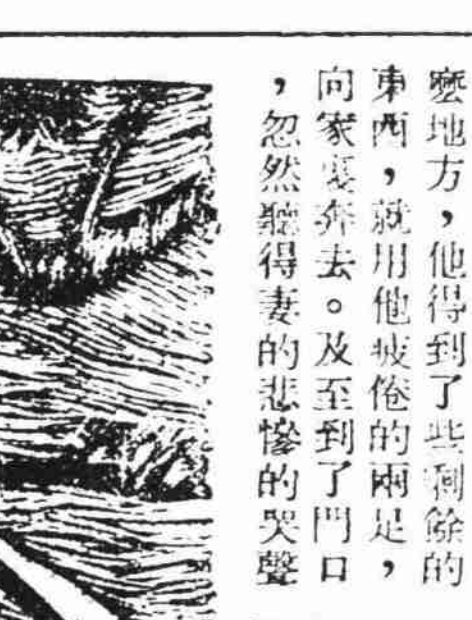 麽地方，他得到了些剩餘的
東西，就用他疲倦的兩足，
向家裏奔去。及至到了門口
，忽然聽得妻的悲慘的哭聲